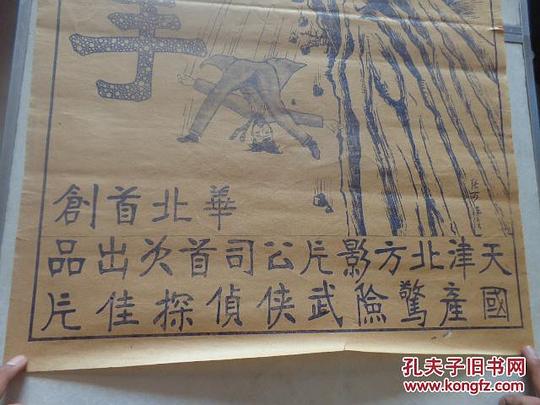 手
華北首創
天津北方影片公司首次出品
國產驚險武侠偵探佳片
孔夫子旧书网
www.kongfz.com